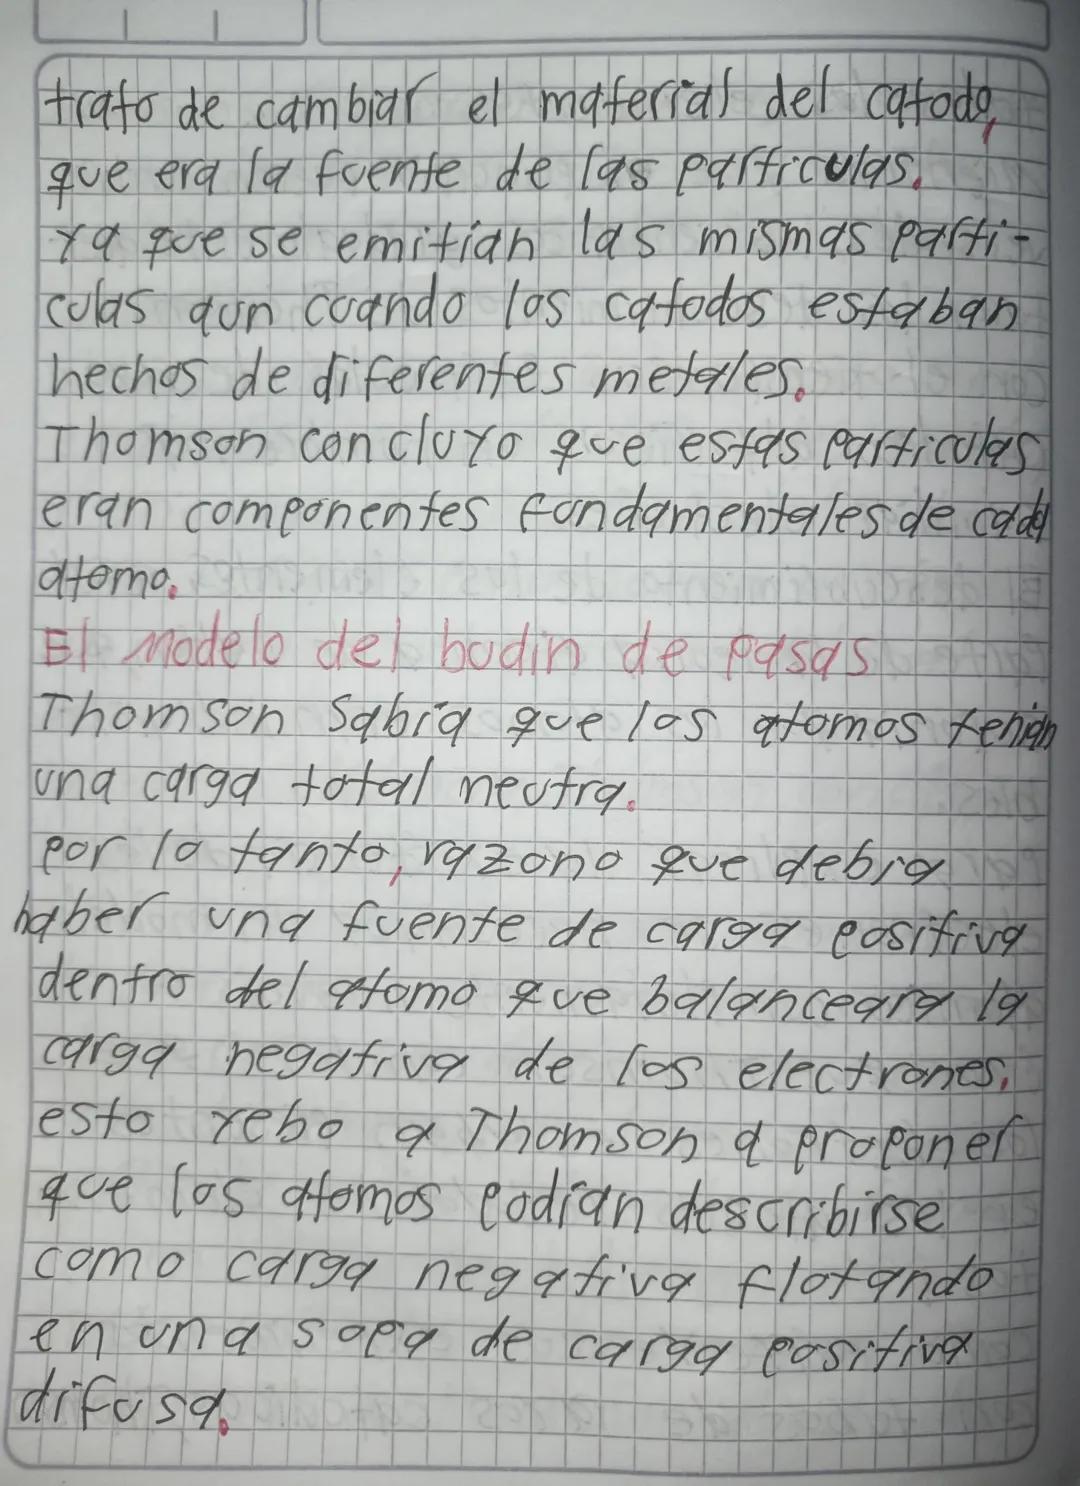 trato de cambiar el material del catodo,
que era la fuente de las particulas.
Ya que se emitian las mismas parti-
culas aun cuando los catodos estaban
hechos de diferentes metales.
Thomson concluyo que estas particulas
eran componentes fundamentales de cada
atomo.
El modelo del budin de pasas
Thomson sabia que los atomos tenian
una carga total neutra.
por lo tanto, razono que debia
haber una fuente de carga positiva
dentro del atomo que balanceara la
carga negativa de los electrones.
esto yebo a Thomson a proponer
que los atomos podian describirse
como carga negativa flotando
en una sopa de carga positiva
difusa.